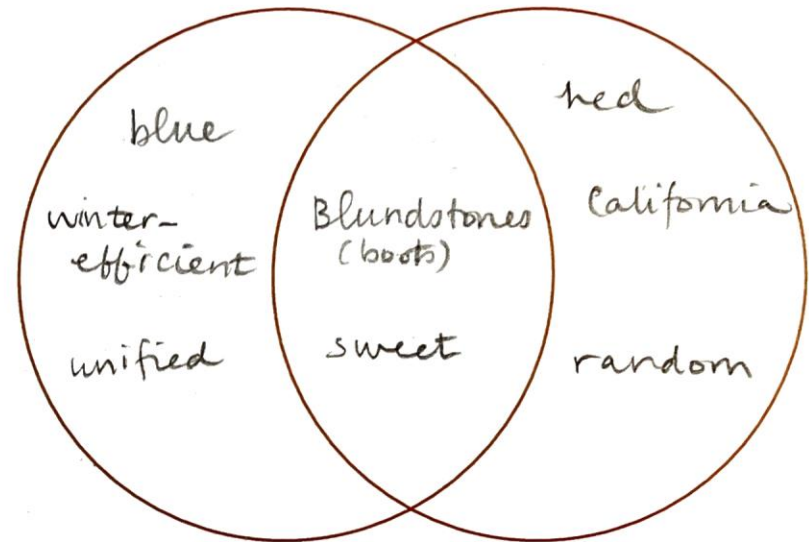 blue
winter-
efficient
unified
Blundstones
(boots)
sweet
red
California
random